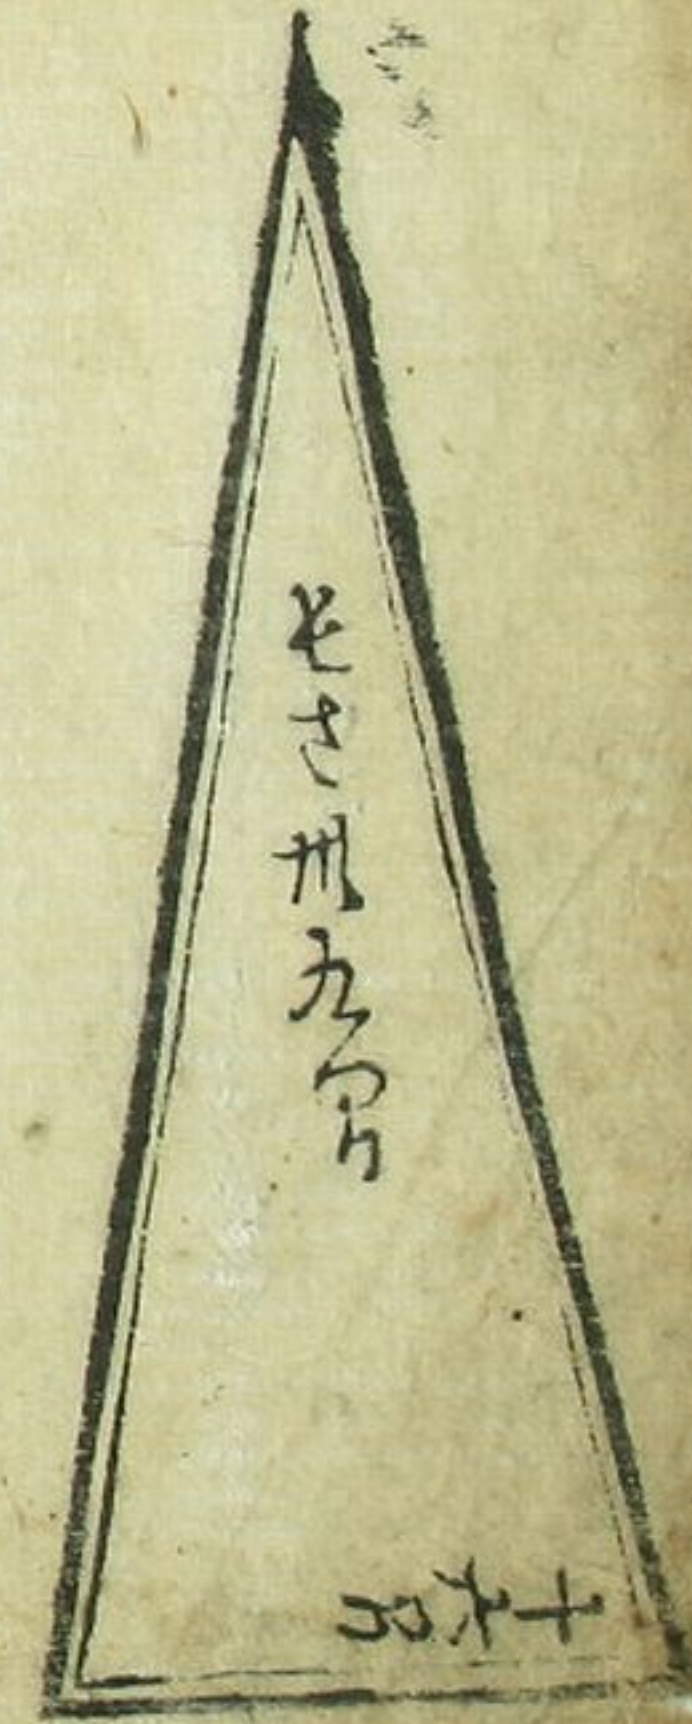 長さ卅九間
十六間